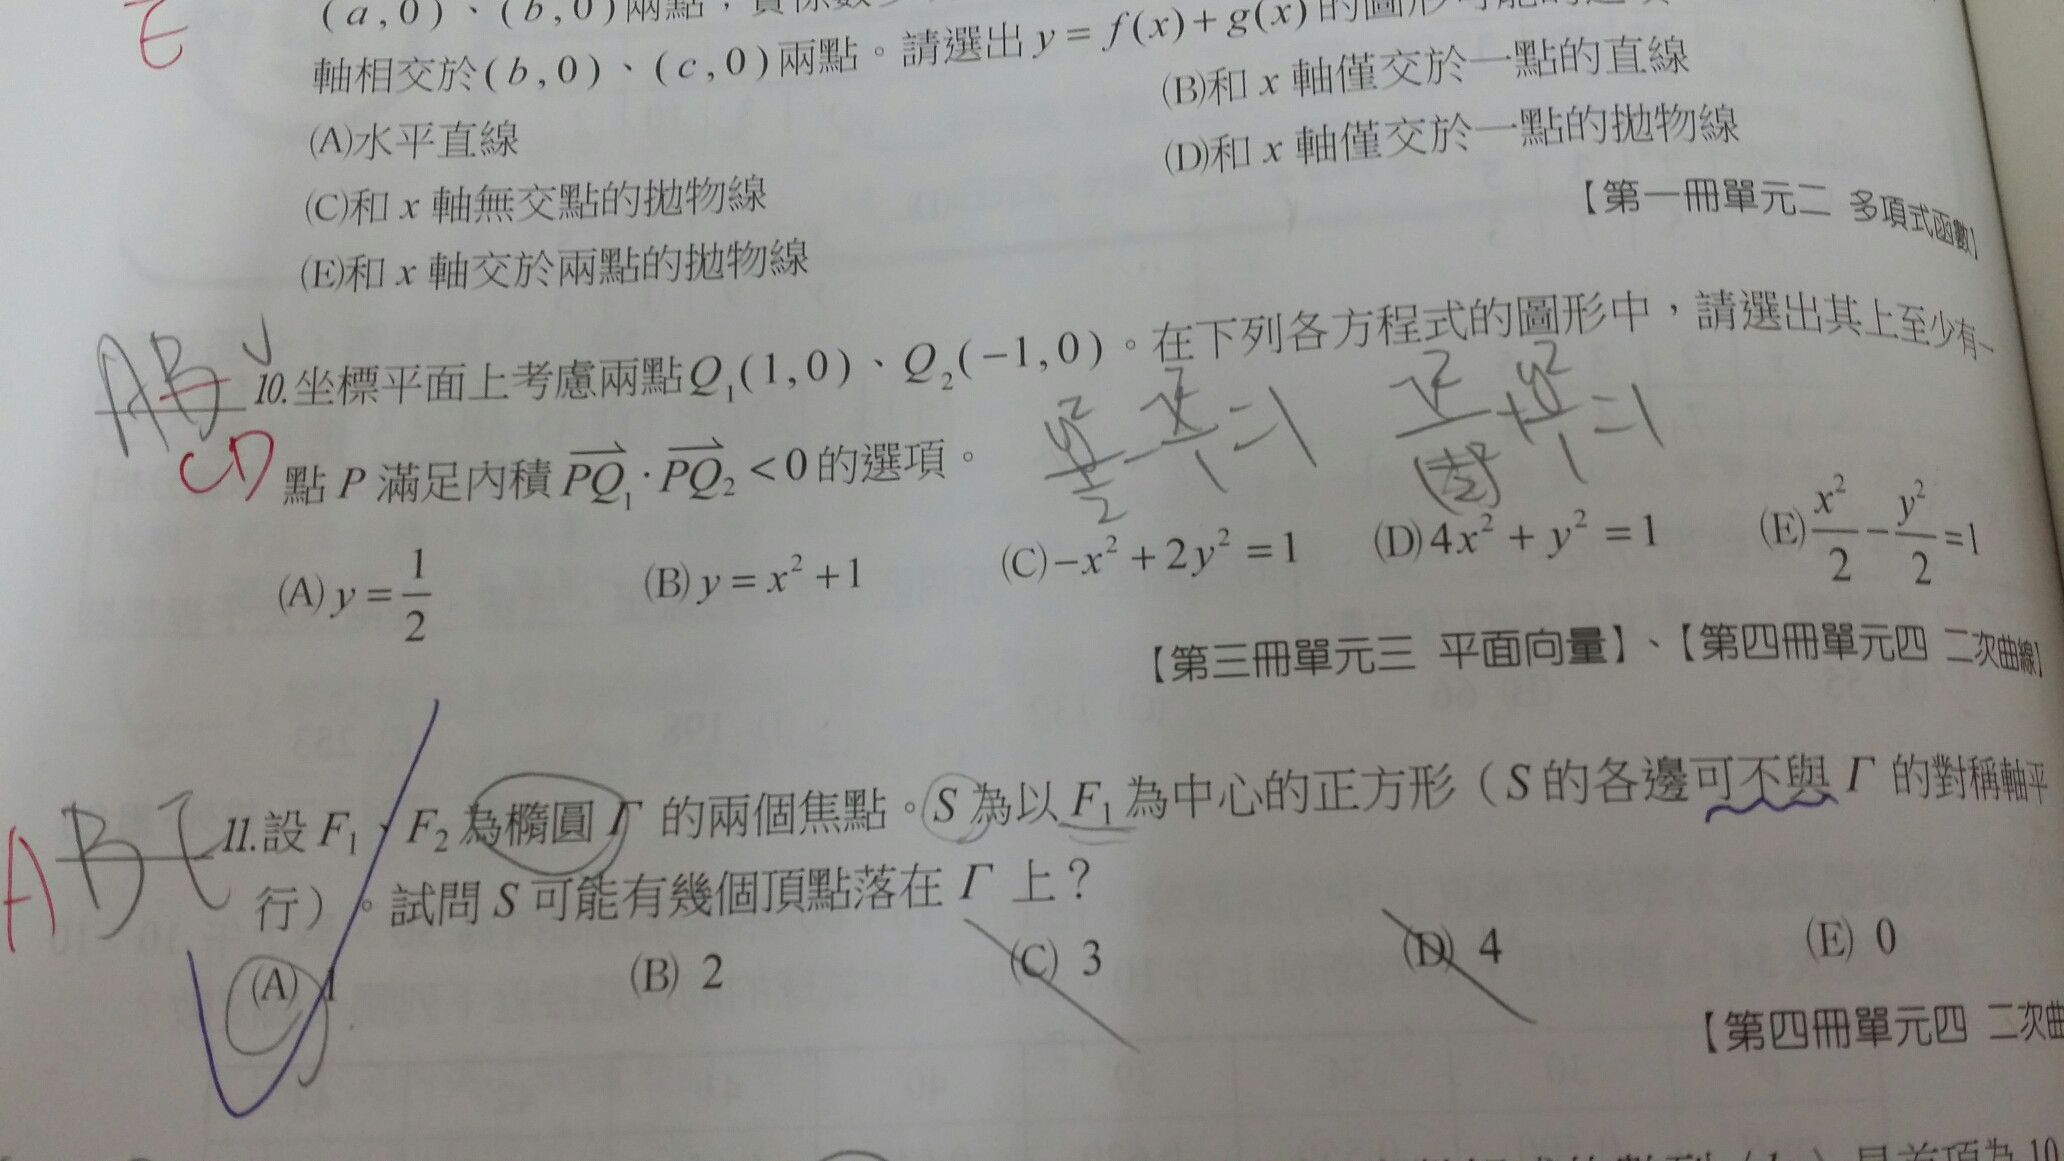 E
(a,0)、(b,0)兩點，實係數多
軸相交於(b,0)、(c,0)兩點。請選出y=f(x)+g(x)的圖形可能的選項。
(A)水平直線
(B)和x軸僅交於一點的直線
(C)和x軸無交點的拋物線
(D)和x軸僅交於一點的拋物線
(E)和x軸交於兩點的拋物線
【第一冊單元二 多項式函數】
AB
CD
10.坐標平面上考慮兩點Q₁(1,0)、Q₂(−1,0)。在下列各方程式的圖形中，請選出其上至少有一
點P滿足內積PQ₁·PQ₂<0的選項。
(A) y=1/2
(B) y=x²+1
(C) −x²+2y²=1
(D) 4x²+y²=1
(E) x²/2−y²/2=1
【第三冊單元三 平面向量】、【第四冊單元四 二次曲線】
A
11.設F₁、F₂為橢圓Γ的兩個焦點。S為以F₁為中心的正方形（S的各邊可不與Γ的對稱軸平
行）。試問S可能有幾個頂點落在Γ上？
(A) 1
(B) 2
(C) 3
(D) 4
(E) 0
【第四冊單元四 二次曲